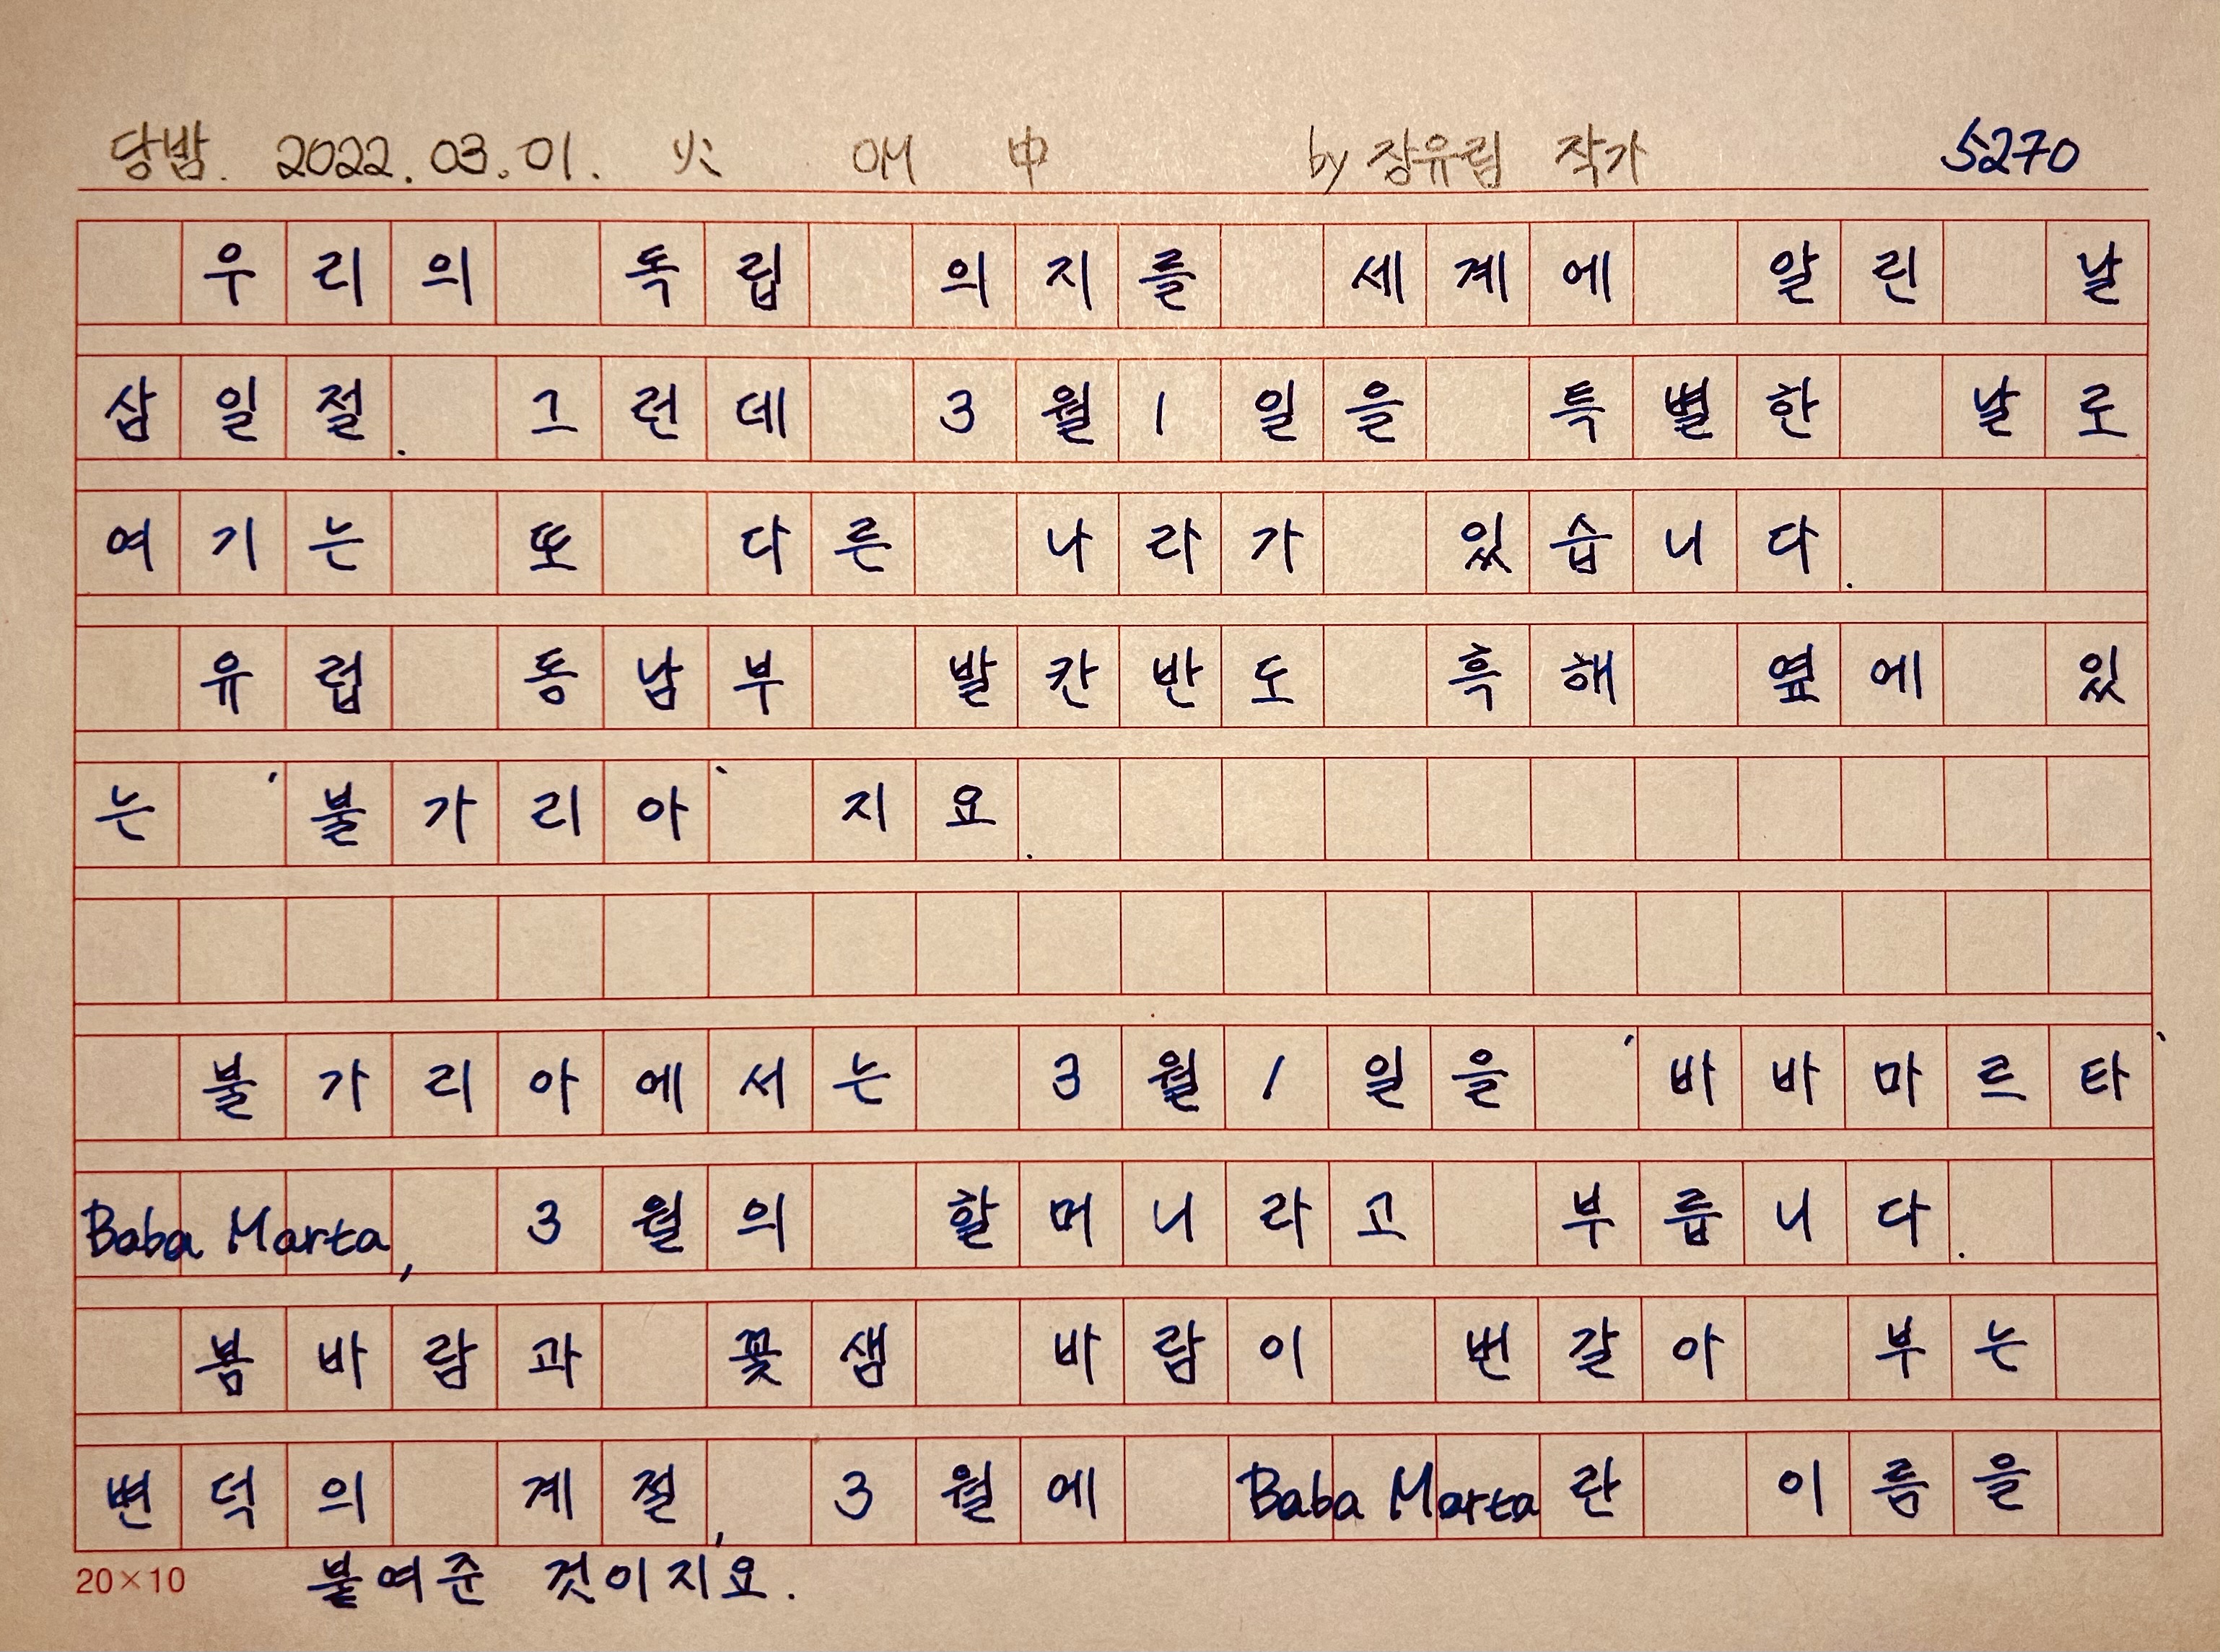 당밤. 2022.03.01. 火 애 申 by 장유림 작가 5270
우리의 독립 의지를 세계에 알린 날
삼일절. 그런데 3월1일을 특별한 날로
여기는 또 다른 나라가 있습니다.
유럽 동남부 발칸반도 흑해 옆에 있
는 '불가리아' 지요.
불가리아에서는 3월1일을 '바바마르타'
Baba Marta, 3월의 할머니라고 부릅니다.
봄바람과 꽃샘 바람이 번갈아 부는
변덕의 계절, 3월에 Baba Marta란 이름을
붙여준 것이지요.
20×10